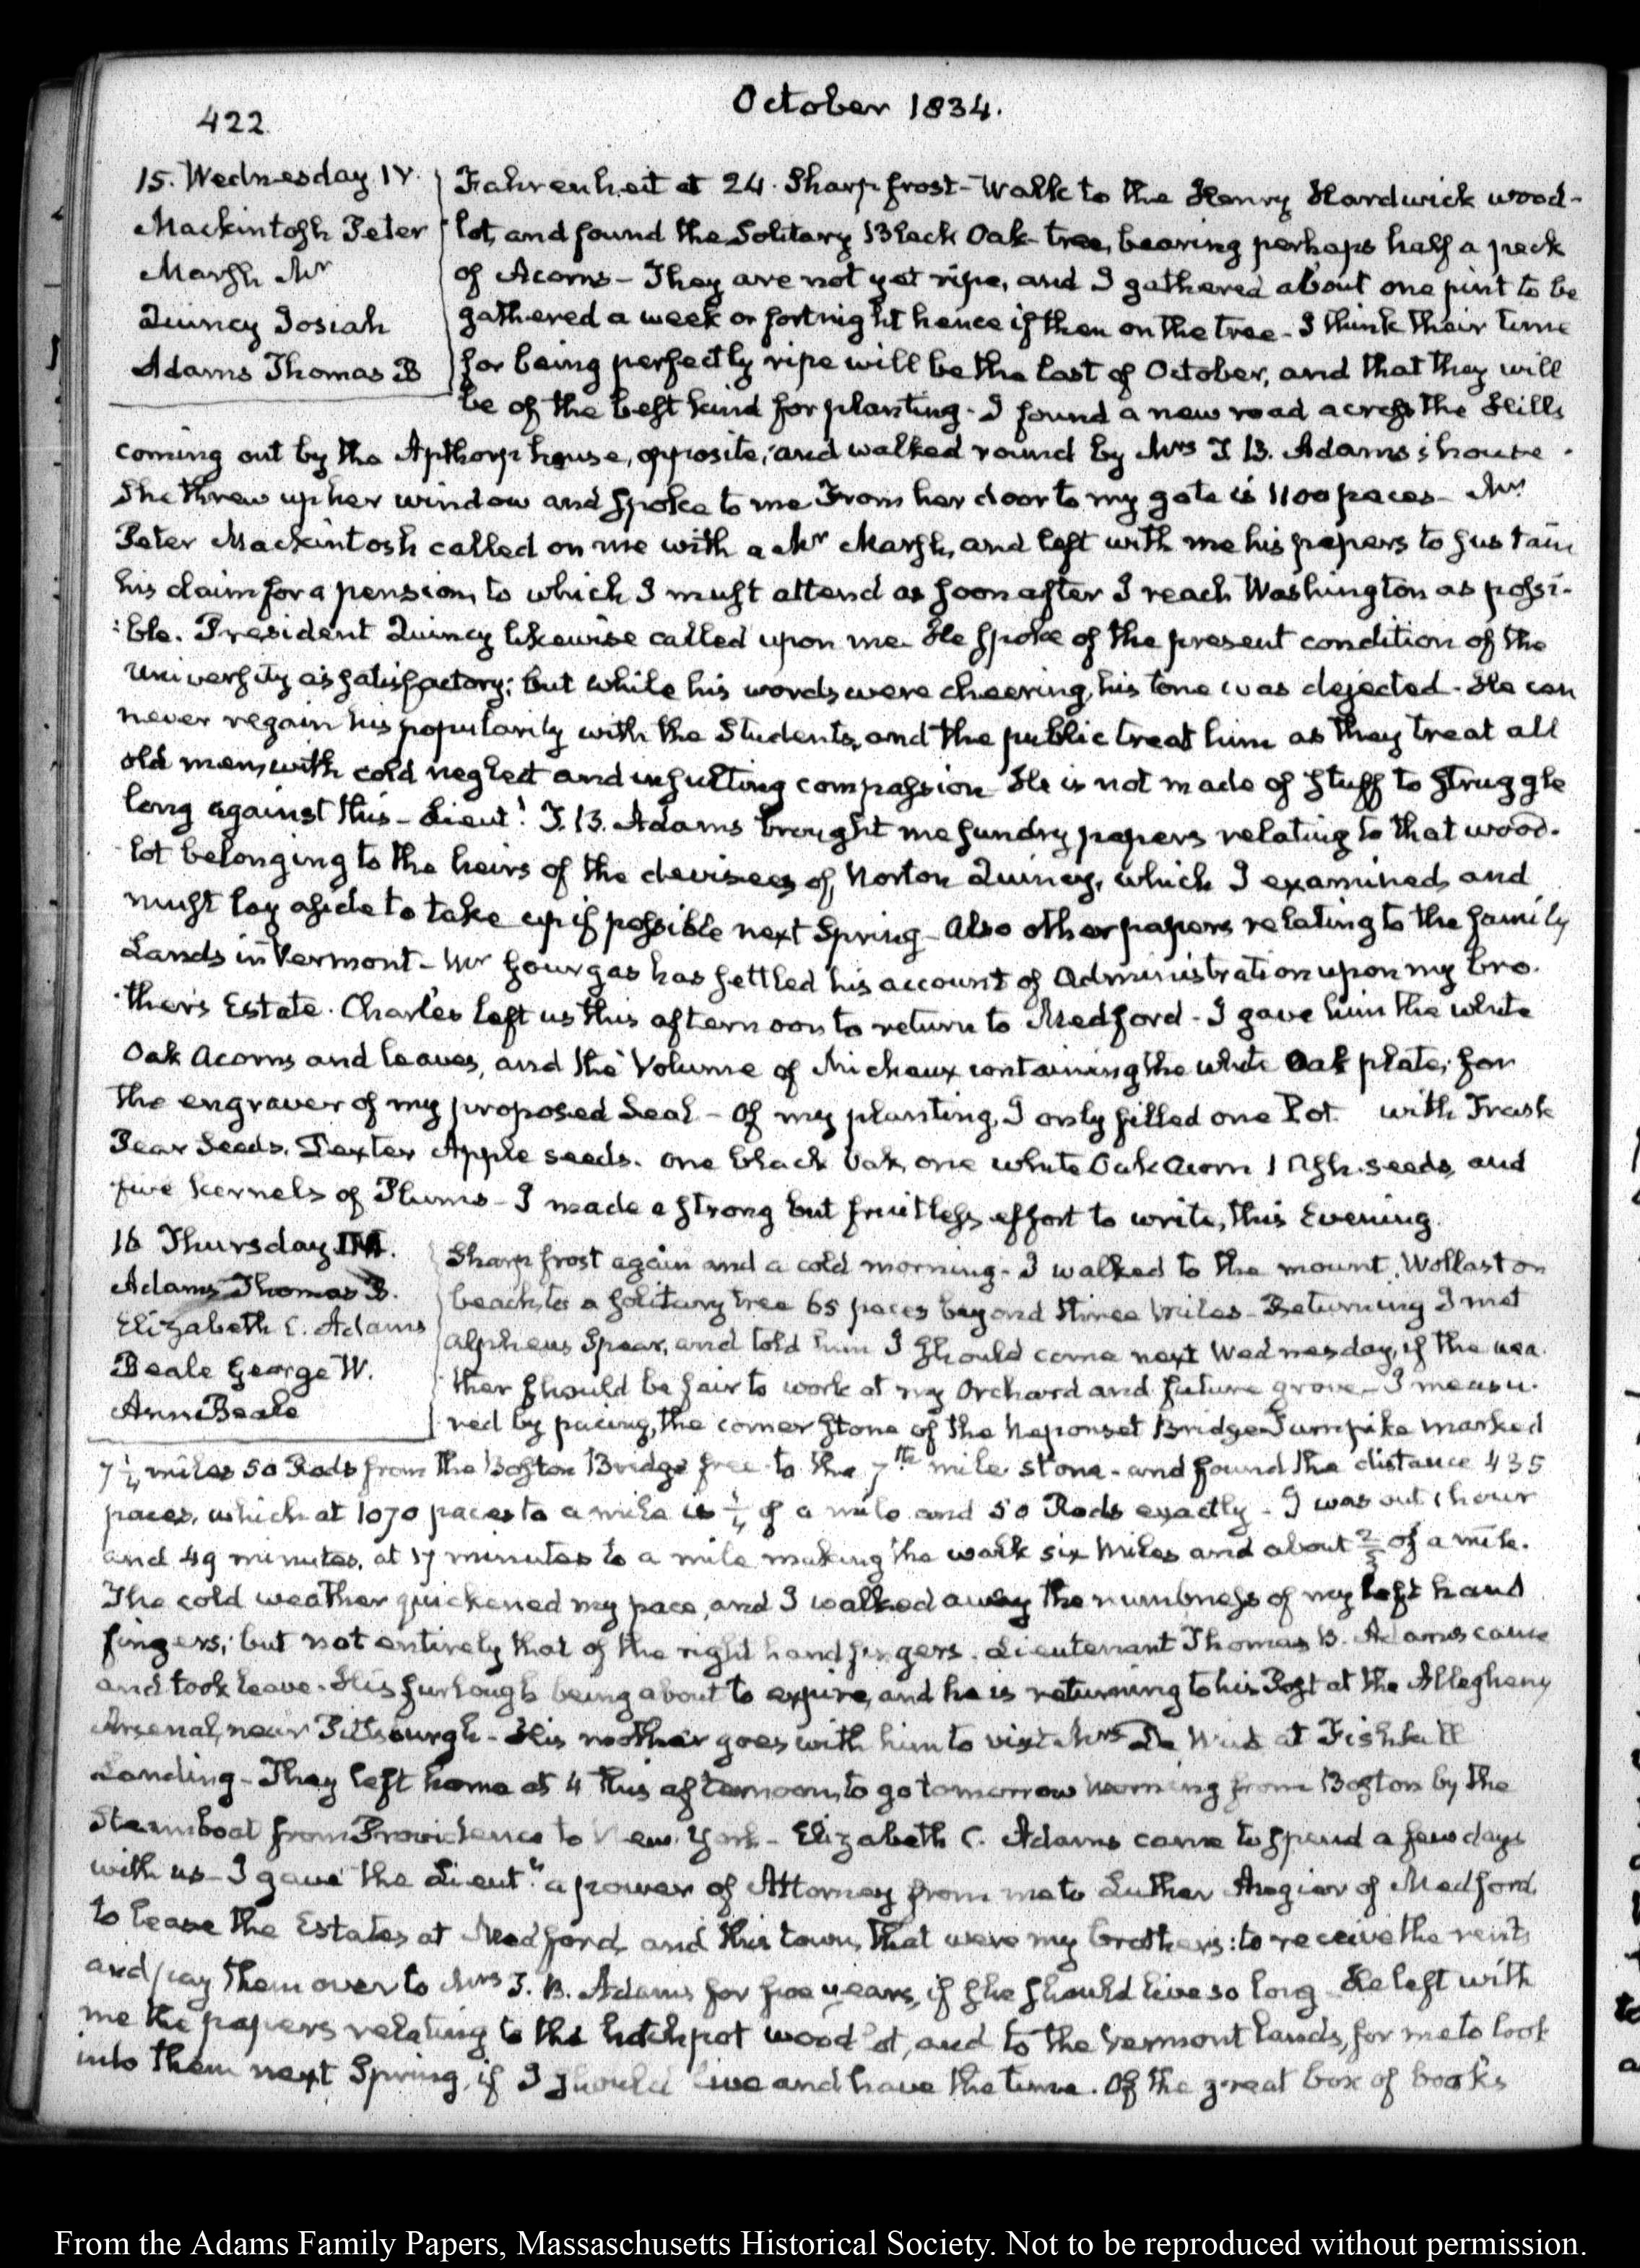 422
October 1834.
15. Wednesday IV.
Mackintosh Peter
Marsh Mr
Quincy Josiah
Adams Thomas B
Fahrenheit at 24. Sharp frost - Walk to the Henry Hardwick wood-
lot, and found the Solitary Black Oak tree, bearing perhaps half a peck
of Acorns - They are not yet ripe, and I gathered about one pint to be
gathered a week or fortnight hence if then on the tree - I think their time
for being perfectly ripe will be the last of October, and that they will
be of the best kind for planting - I found a new road across the Hills
coming out by the Apthorp house, opposite, and walked round by Mrs T. B. Adams's house.
She threw up her window and spoke to me From her door to my gate is 1100 paces - Mr
Peter Mackintosh called on me with a Mr Marsh, and left with me his papers to sustain
his claim for a pension, to which I must attend as soon after I reach Washington as possi-
:ble. President Quincy likewise called upon me. He spoke of the present condition of the
University as satisfactory; but while his words were cheering, his tone was dejected - He can
never regain his popularity with the Students, and the public treat him as they treat all
old men, with cold neglect and insulting compassion He is not made of stuff to struggle
long against this - Lieut! T. B. Adams brought me sundry papers relating to that wood-
lot belonging to the heirs of the devisees of Norton Quincy, which I examined, and
must lay aside to take up if possible next Spring - Also other papers relating to the family
Lands in Vermont - Mr Gourgas has settled his account of Administration upon my bro-
:thers Estate. Charles left us this afternoon to return to Medford - I gave him the white
Oak Acorns and leaves, and the Volume of Michaux containing the white Oak plate; for
the engraver of my proposed Seal - Of my planting, I only filled one Pot with Trask
Pear Seeds. Dexter Apple seeds. one black Oak, one white Oak Acorn 1 Ash. seeds, and
five kernels of Plums - I made a strong but fruitless effort to write, this Evening.
16 Thursday IV.
Adams Thomas B.
Elizabeth C. Adams
Beale George W.
Ann Beale
Sharp frost again and a cold morning - I walked to the mount Wollaston
beach, to a solitary tree 65 paces beyond three Miles - Returning I met
Alpheus Spear, and told him I should come next Wednesday, if the wea-
:ther should be fair to work at my Orchard and future grove - I measu-
red by pacing, the corner stone of the Neponset Bridge Turnpike marked
7 1/4 miles 50 Rods from the Boston Bridge free to the 7th mile stone - and found the distance 435
paces, which at 1070 paces to a mile is 1/4 of a mile and 50 Rods exactly - I was out 1 hour
and 49 minutes, at 17 minutes to a mile making the walk six Miles and about 2/5 of a mile.
The cold weather quickened my pace, and I walked away the numbness of my left hand
fingers; but not entirely that of the right hand fingers. Lieutenant Thomas B. Adams came
and took leave. His furlough being about to expire, and he is returning to his Post at the Allegheny
Arsenal, near Pittsburgh - His mother goes with him to visit Mrs De Wint at Fishkill
Landing - They left home at 4 this afternoon, to go tomorrow morning from Boston by the
Steamboat from Providence to New-York - Elizabeth C. Adams came to spend a few days
with us - I gave the Lieut. a power of Attorney from me to Luther Angier of Medford,
to lease the Estates at Medford, and this town, that were my brothers: to receive the rents
and pay them over to Mrs T. B. Adams for five years, if she should live so long He left with
me the papers relating to the hotchpot wood lot, and to the Vermont lands, for me to look
into them next Spring, if I should live and have the time. Of the great box of books
From the Adams Family Papers, Massachusetts Historical Society. Not to be reproduced without permission.